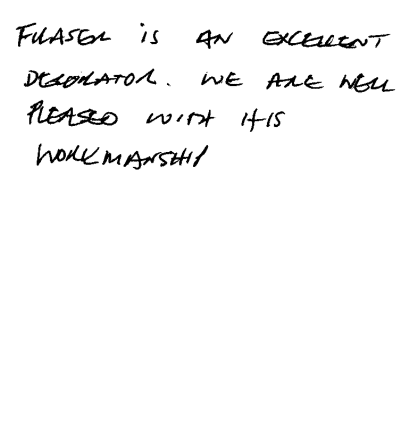 FRASER is AN EXCELLENT
DECORATOR. WE ARE WELL
PLEASED WITH HIS
WORKMANSHIP